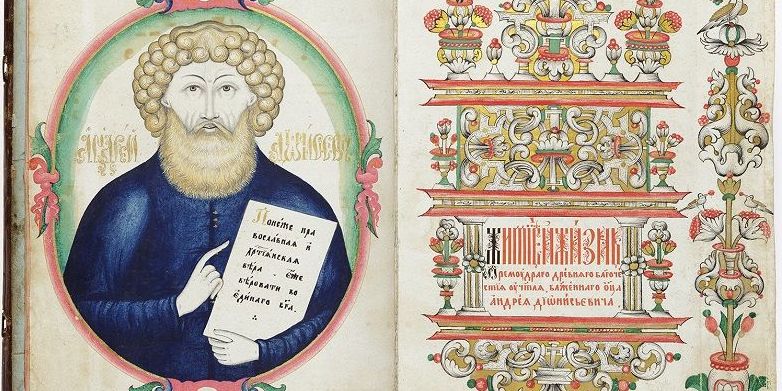 Андрей Дионисович
Понеже пра
вославная и
хртїанская
вѣра . еже
вѣровати во
единаго бга .
премудраго древняго благоче
стїѧ оучтлѧ, блаженнаго оца
андреѧ дїонисьевича .